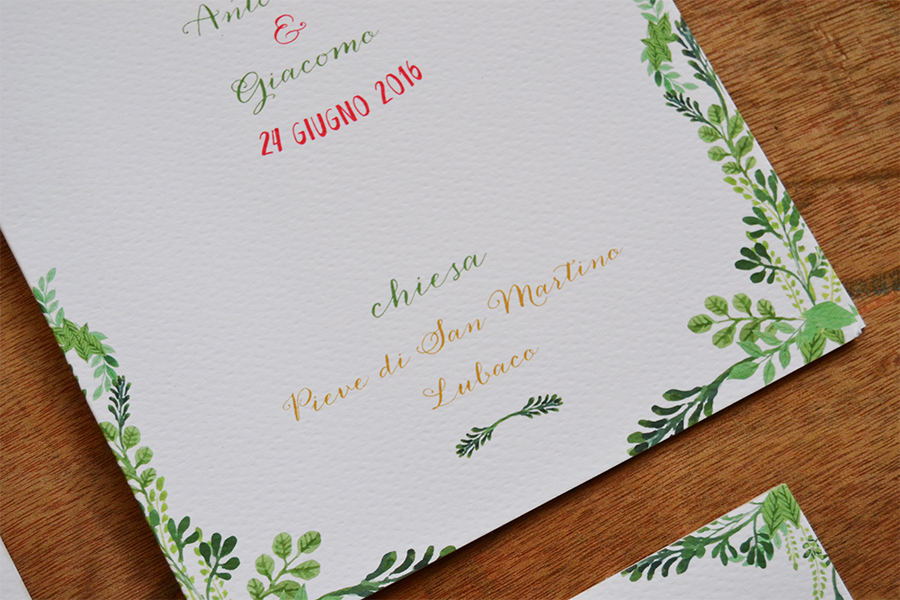 &
Giacomo
24 GIUGNO 2016
chiesa
Pieve di San Martino
Lubaco